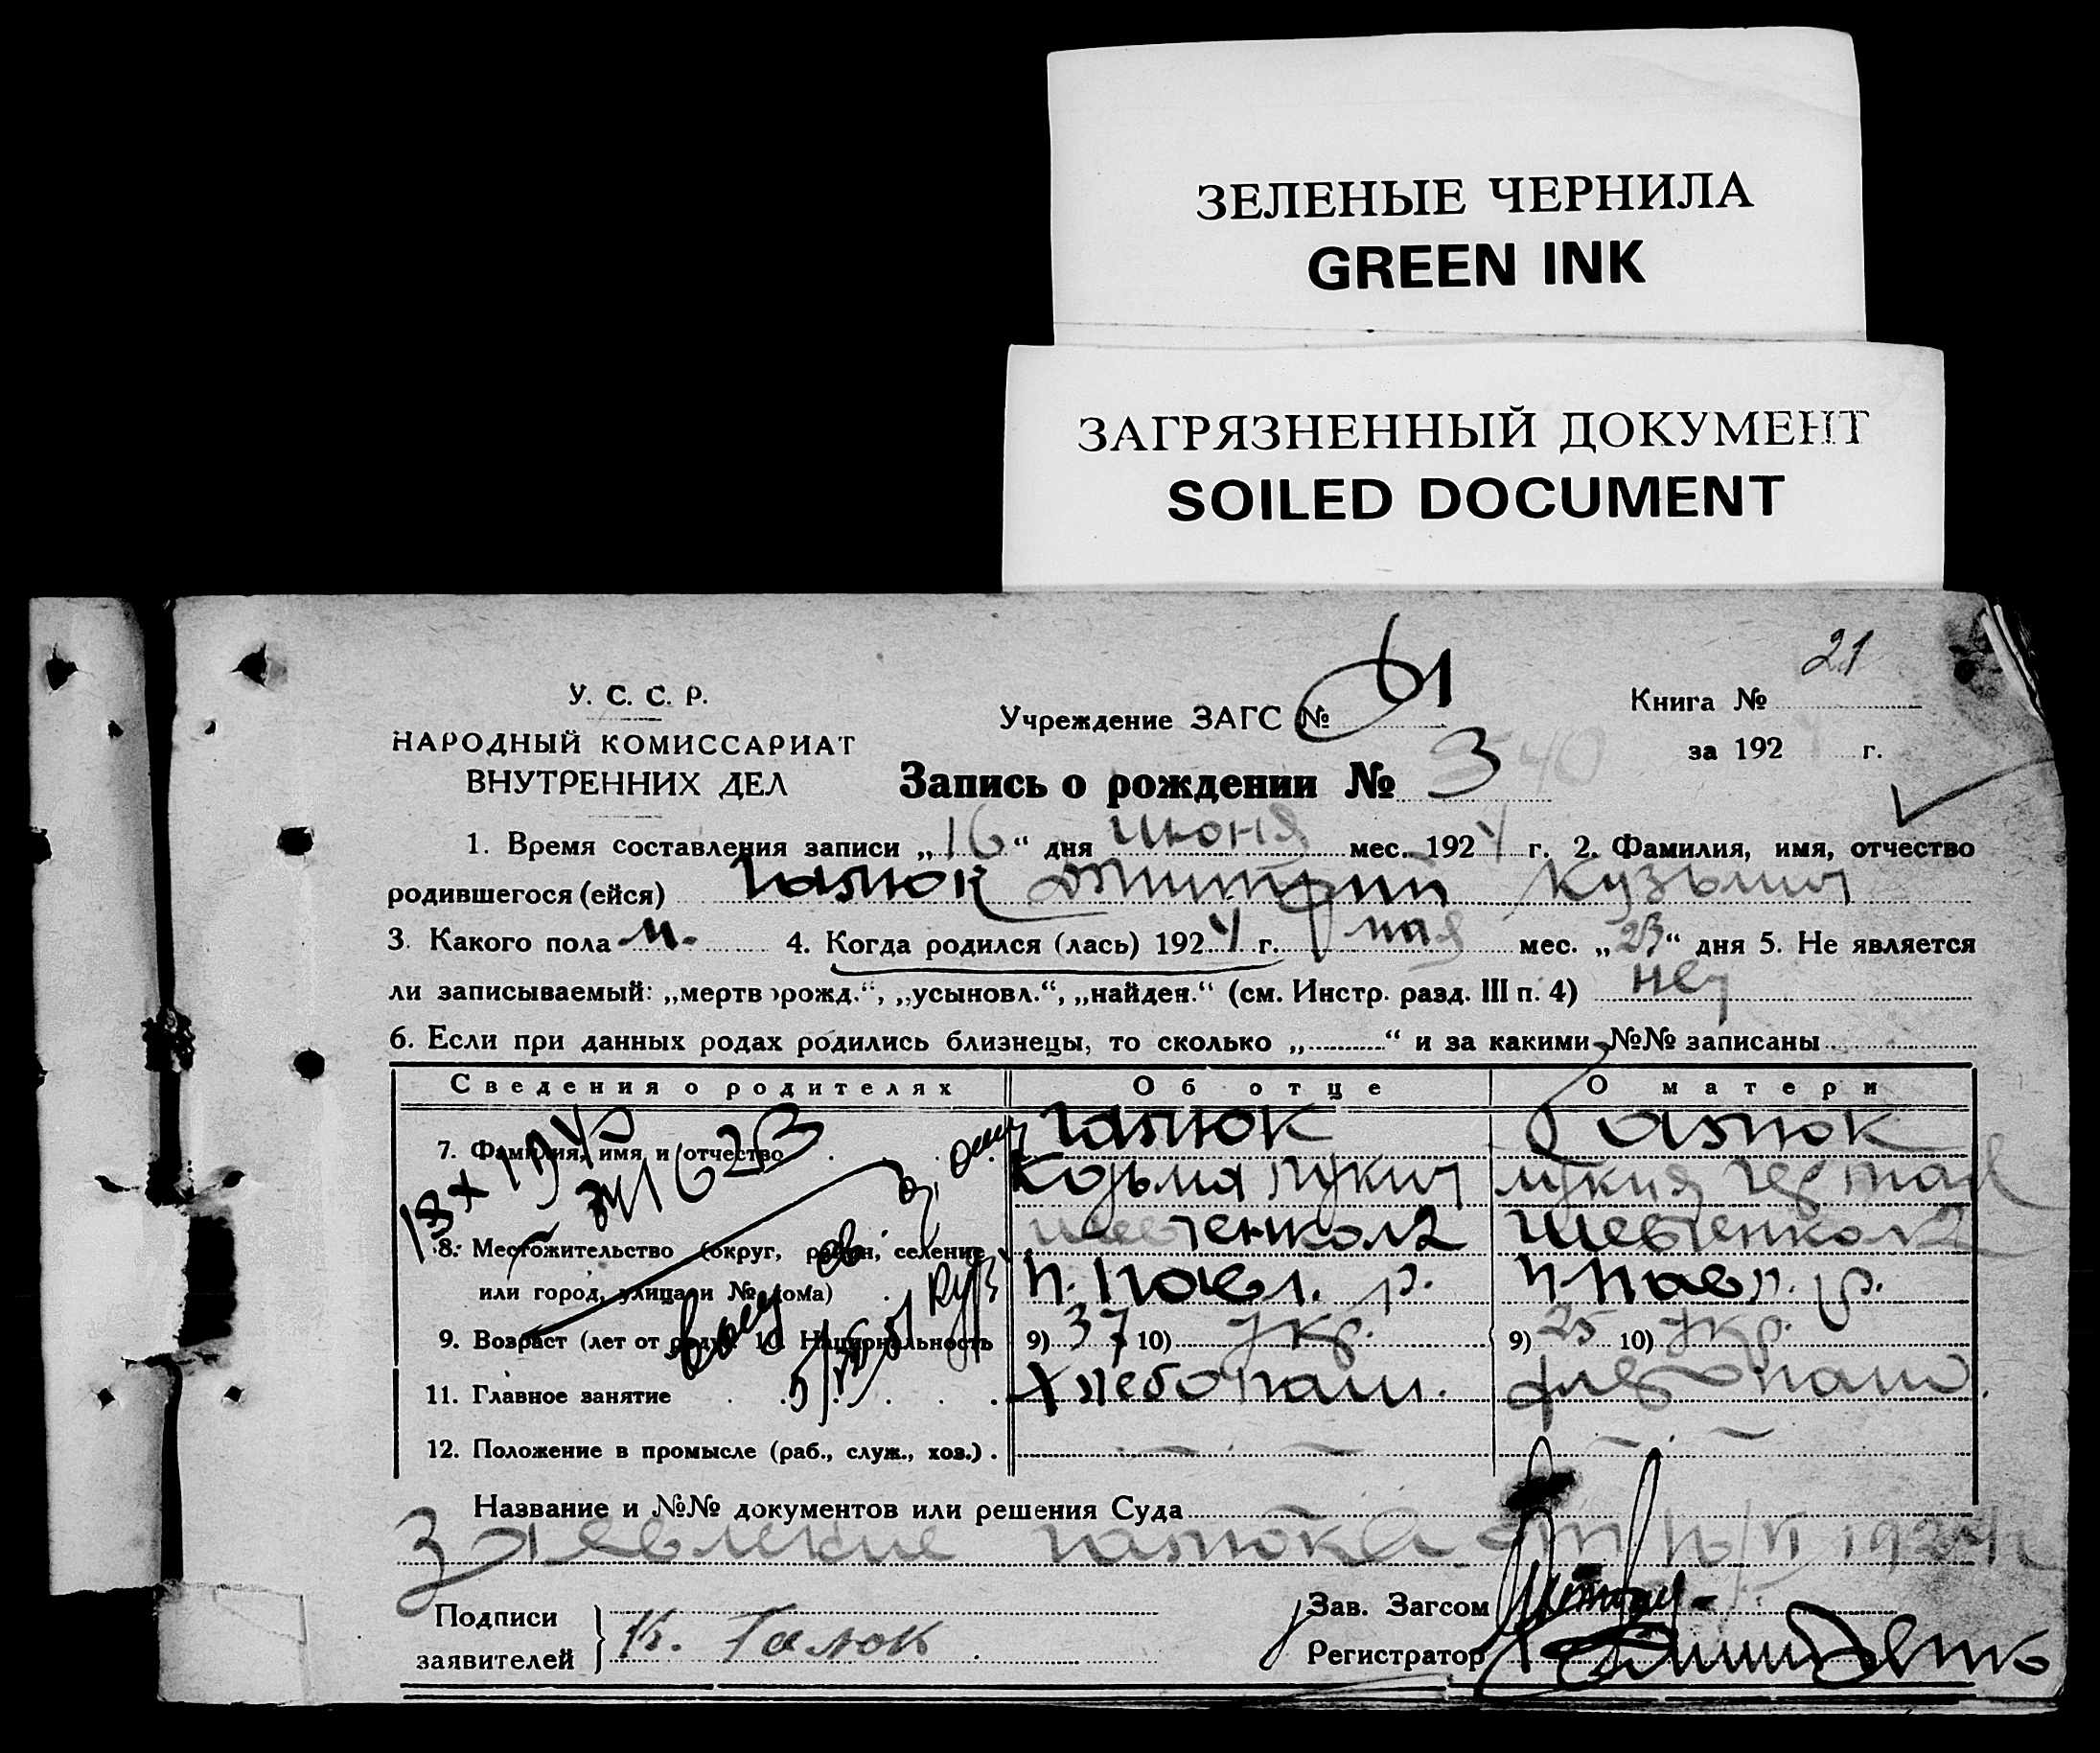 ЗЕЛЕНЫЕ ЧЕРНИЛА
GREEN INK
ЗАГРЯЗНЕННЫЙ ДОКУМЕНТ
SOILED DOCUMENT
21
У. С. С. Р.
НАРОДНЫЙ КОМИССАРИАТ
ВНУТРЕННИХ ДЕЛ
Учреждение ЗАГС № 61
Книга №
за 192 г.
Запись о рождении № 3 40
1. Время составления записи „16“ дня июня мес. 1924 г. 2. Фамилия, имя, отчество
родившегося (ейся) Галюк Дмитрий Кузьмич
3. Какого пола м. 4. Когда родился (лась) 1924 г. мая мес. „23“ дня 5. Не является
ли записываемый: „мертворожд.“, „усыновл.“, „найден.“ (см. Инстр. разд. III п. 4) нет
6. Если при данных родах родились близнецы, то сколько „..........“ и за какими №№ записаны
Сведения о родителях Об отце О матери
7. Фамилия, имя и отчество Галюк Галюк
Козьма Лукич
8. Местожительство (округ, район, селение
или город, улица и № дома) П. Павл. р. П. Павл. р.
9. Возраст (лет от роду) 10. Национальность 9) 37 10) Укр. 9) 25 10) Укр.
11. Главное занятие Хлебопаш.
12. Положение в промысле (раб., служ., хоз.)
Название и №№ документов или решения Суда
Заявление Галюка от 16/VI 1924
Подписи
заявителей К. Галюк
Зав. Загсом
Регистратор